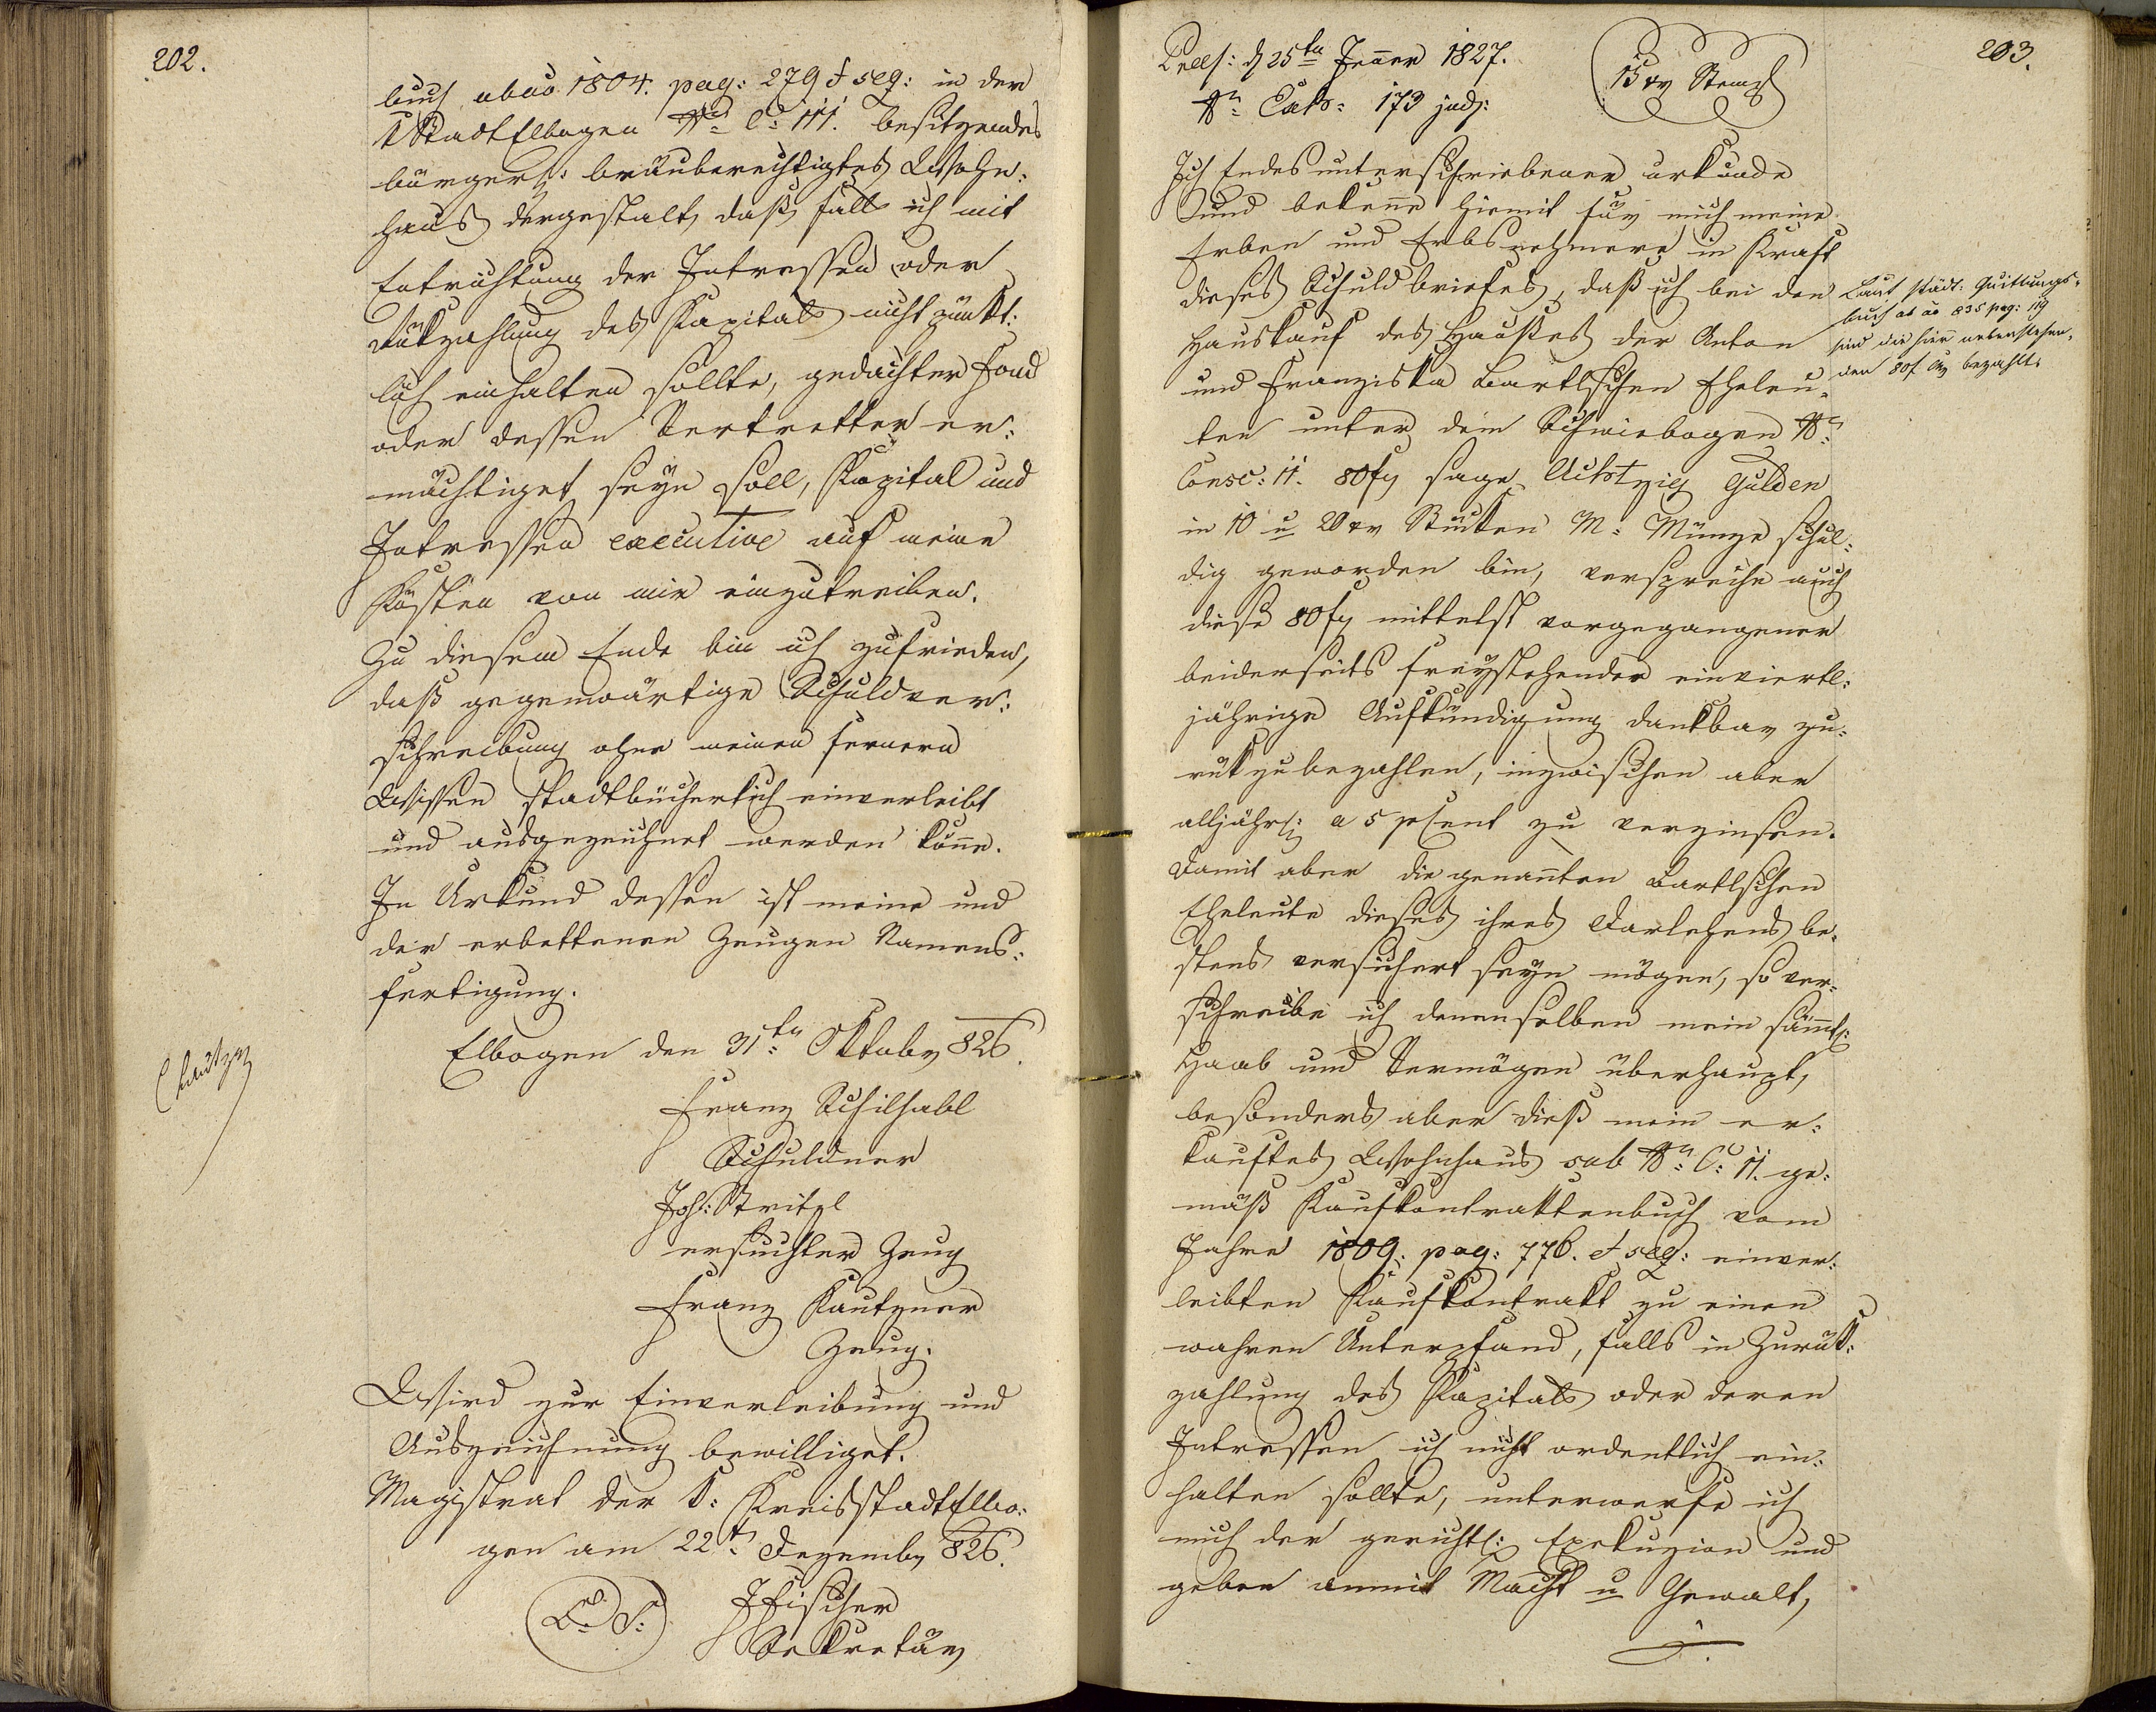 202.
buch ab ao 1804. pag: 279 et seq: in der
k Stadt Elbogen Nro C: 111. besitzendes
bürgerl: bräuberechtigtes Wohn:
haus dergestalt, daß, falls ich mit
Entrichtung der Intressen oder
Rükzahlung des Kapitals nicht pünkt:
lich einhalten sollte, gedachter Fond
oder dessen Vertretter er:
mächtiget seyn soll, Kapital und
Intressen executive auf meine
Kösten von mir einzutreiben.
Zu diesem Ende bin ich zufrieden,
daß gegenwärtige Schuldver:
schreibung ohne meinen fernern
Wissen stadtbücherlich einverleibt
und ausgezeichnet werden könne.
In Urkund dessen ist meine und
der erbettenen Zeugen Namens:
fertigung.
Elbogen den 31ten Oktober 826.
Franz Schilhabl
Schuldner
Joh: Stritzl
ersuchter Zeug
Franz Kautzner
Zeug.
Wird zur Einverleibung und
Auszeichnung bewilliget.
Magistrat der k: Kreisstadt Elbo:
gen am 22t Dezember 826.
L: S:
JFischer
Sekretär
203.
Praes: d 25ten Jenner 1827.
15 xr Stempl
Nro Exh: 173 jud:
Ich Endesunterschriebener urkunde
und bekenne hiemit für mich meine
Erben und Erbsnehmere in Kraft
dieses Schuldbriefes, daß ich bei den
Hauskauf des Hauses der Anton
und Franziska Bartlschen Eheleu:
ten unter dem Schwiebogen Nro
Consc: 11. 80 fr sage Achtzig Gulden
in 10 u 20 xr Stüken M: Münze schul:
dig geworden bin, verspreche auch
diese 80 fr mittelst vorgegangener
beiderseits freystehender einviertl:
jähriger Aufkündigung dankbar zu:
rükzubezahlen, inzwischen aber
alljährl: a 5 pcent zu verzinsen.
Damit aber die genannten Bartlschen
Eheleute dieses ihres Darlehens be:
stens versichert seyn mögen, so ver:
schreibe ich denenselben mein sämmtl:
Haab und Vermögen überhaupt,
besonders aber dieß mein er:
kauftes Wohnhaus sub Nro C: 11. ge:
mäß Kaufkontraktenbuch vom
Jahre 1809. pag: 776. et seq: einver:
leibten Kaufkontrakt zu einen
wahren Unterpfand, falls in Zurük:
zahlung des Kapitals oder deren
Intressen ich nicht ordentlich ein:
halten sollte, unterwerfe ich
mich der gerichtl: Exekuzion und
geben anmit Macht u Gewalt,
Laut städt: Quittungs:
buch ab ao 835 pag: 119
sind die hier nebenstehen:
den 80 f bezahlt.